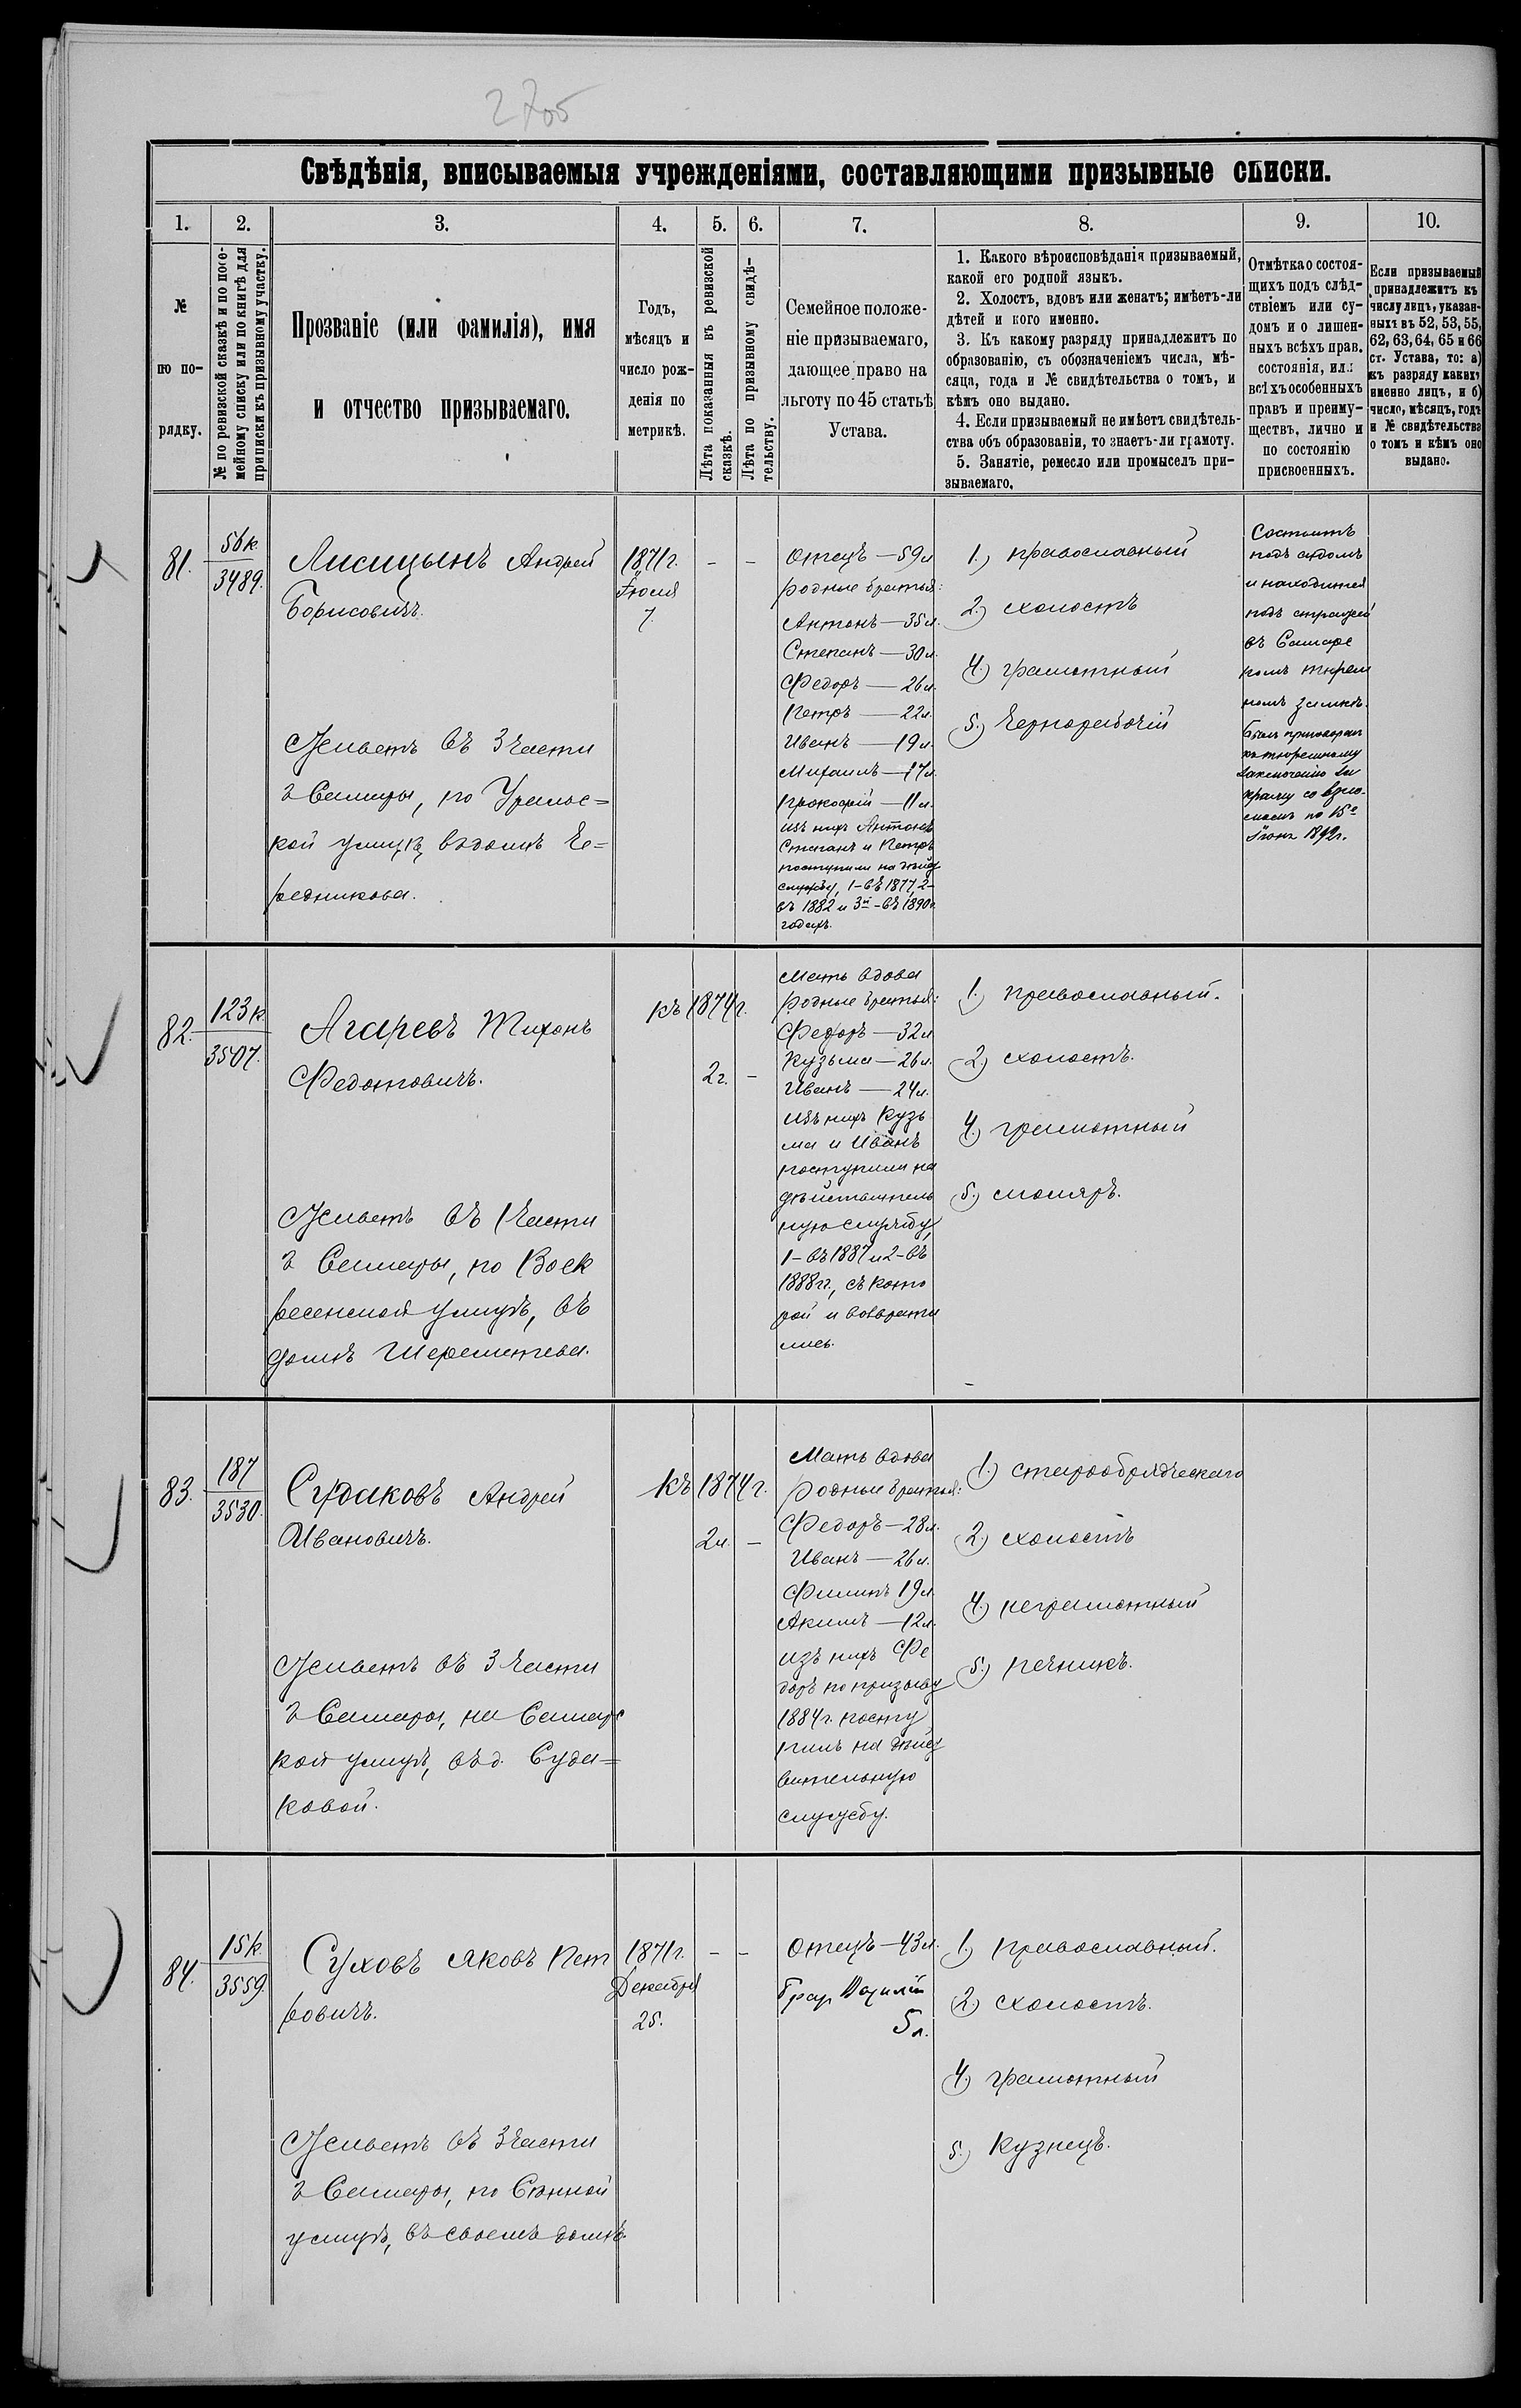 2705
Свѣдѣнія, вписываемыя учрежденіями, составляющими призывные списки.
1.
2.
3.
4.
5.
6.
7.
8.
9.
10.
№
по по-
рядку.
№ по ревизской сказкѣ и по посе-
мейному списку или по книгѣ для
приписки къ призывному участку.
Прозваніе (или фамилія), имя
и отчество призываемаго.
Годъ,
мѣсяцъ и
число рож-
денія по
метрикѣ.
Лѣта показанныя въ ревизской
сказкѣ.
Лѣта по призывному свидѣ-
тельству.
Семейное положе-
ніе призываемаго,
дающее право на
льготу по 45 статьѣ
Устава.
1. Какого вѣроисповѣданія призываемый,
какой его родной языкъ.
2. Холостъ, вдовъ или женатъ; имѣетъ-ли
дѣтей и кого именно.
3. Къ какому разряду принадлежитъ по
образованію, съ обозначеніемъ числа, мѣ-
сяца, года и № свидѣтельства о томъ, и
кѣмъ оно выдано.
4. Если призываемый не имѣетъ свидѣтель-
ства объ образованіи, то знаетъ-ли грамоту.
5. Занятіе, ремесло или промыселъ при-
зываемаго.
Отмѣтка о состоя-
щихъ подъ слѣд-
ствіемъ или су-
домъ и о лишен-
ныхъ всѣхъ прав.
состоянія, или
всѣхъ особенныхъ
правъ и преиму-
ществъ, лично и
по состоянію
присвоенныхъ.
Если призываемый
принадлежитъ къ
числу лицъ, указан-
ныхъ въ 52, 53, 55,
62, 63, 64, 65 и 66
ст. Устава, то: а)
къ разряду какихъ
именно лицъ, и б)
число, мѣсяцъ, годъ
и № свидѣтельства
о томъ и кѣмъ оно
выдано.
81.
56 к.
3489.
Лисицынъ Андрей
Борисовичъ.
Живетъ въ 3 части
г Самары, по Уральс=
кой улицѣ, въ домѣ Че=
редникова.
1871 г.
Іюля
7.
- -
Отецъ — 59 л
родные братья:
Антонъ — 35 л.
Степанъ — 30 л.
Федоръ — 26 л.
Петръ — 22 л.
Иванъ — 19 л.
Михаилъ — 17 л.
Прокофій — 11 л.
изъ нихъ Антонъ
Степанъ и Петръ
поступили на дѣйс
службу, 1-въ 1877, 2-
въ 1882 и 3й-въ 1890 г.
годахъ.
1.) православный
2.) холостъ
4.) грамотный
5.) Чернорабочій
Состоитъ
подъ судомъ
и находится
подъ стражей
въ Самарс
комъ тюрем
номъ замкѣ.
къ тюремному
заключенію за
кражу со взло-
момъ по 15е
Іюня 1892 г.
82.
123 к
3507.
Агаревъ Тихонъ
Федотовичъ.
Живетъ въ 1 части
г Самары, по Воск
ресенской улицѣ, въ
домѣ Шереметева.
къ 1874 г.
2 г. -
Мать вдова
родные братья:
Федоръ — 32 л
Кузьма — 26 л.
Иванъ — 24 л.
изъ нихъ Кузь
ма и Иванъ
поступили на
дѣйствитель
ную службу,
1-въ 1887 и 2-въ
1888 гг., съ кото
рой и возврати
лись.
1.) православный.
2.) холостъ.
4.) грамотный
5.) столяръ.
83.
187
3530.
Судаковъ Андрей
Ивановичъ.
Живетъ въ 3 части
г Самары, на Самарс
кой улицѣ, въ д. Суда=
ковой.
къ 1874 г.
2 л. -
Мать вдова
родные братья:
Федоръ — 28 л.
Иванъ — 26 л.
Филипъ 19 л.
Акимъ — 12 л.
изъ нихъ Фе
доръ по призыву
1884 г. посту
пилъ на дѣйст
вительную
службу.
1.) старообрядческаго
2.) холостъ
4.) неграмотный
5.) печникъ.
84.
15 к.
3559.
Суховъ Яковъ Пет
ровичъ.
Живетъ въ 3 части
г Самары, по Сѣнной
улицѣ, въ своемъ домѣ.
1871 г.
Декабря
25.
- -
Отецъ — 43 л.
5 л.
1.) православный.
2.) холостъ.
4.) грамотный
5.) Кузнецъ.